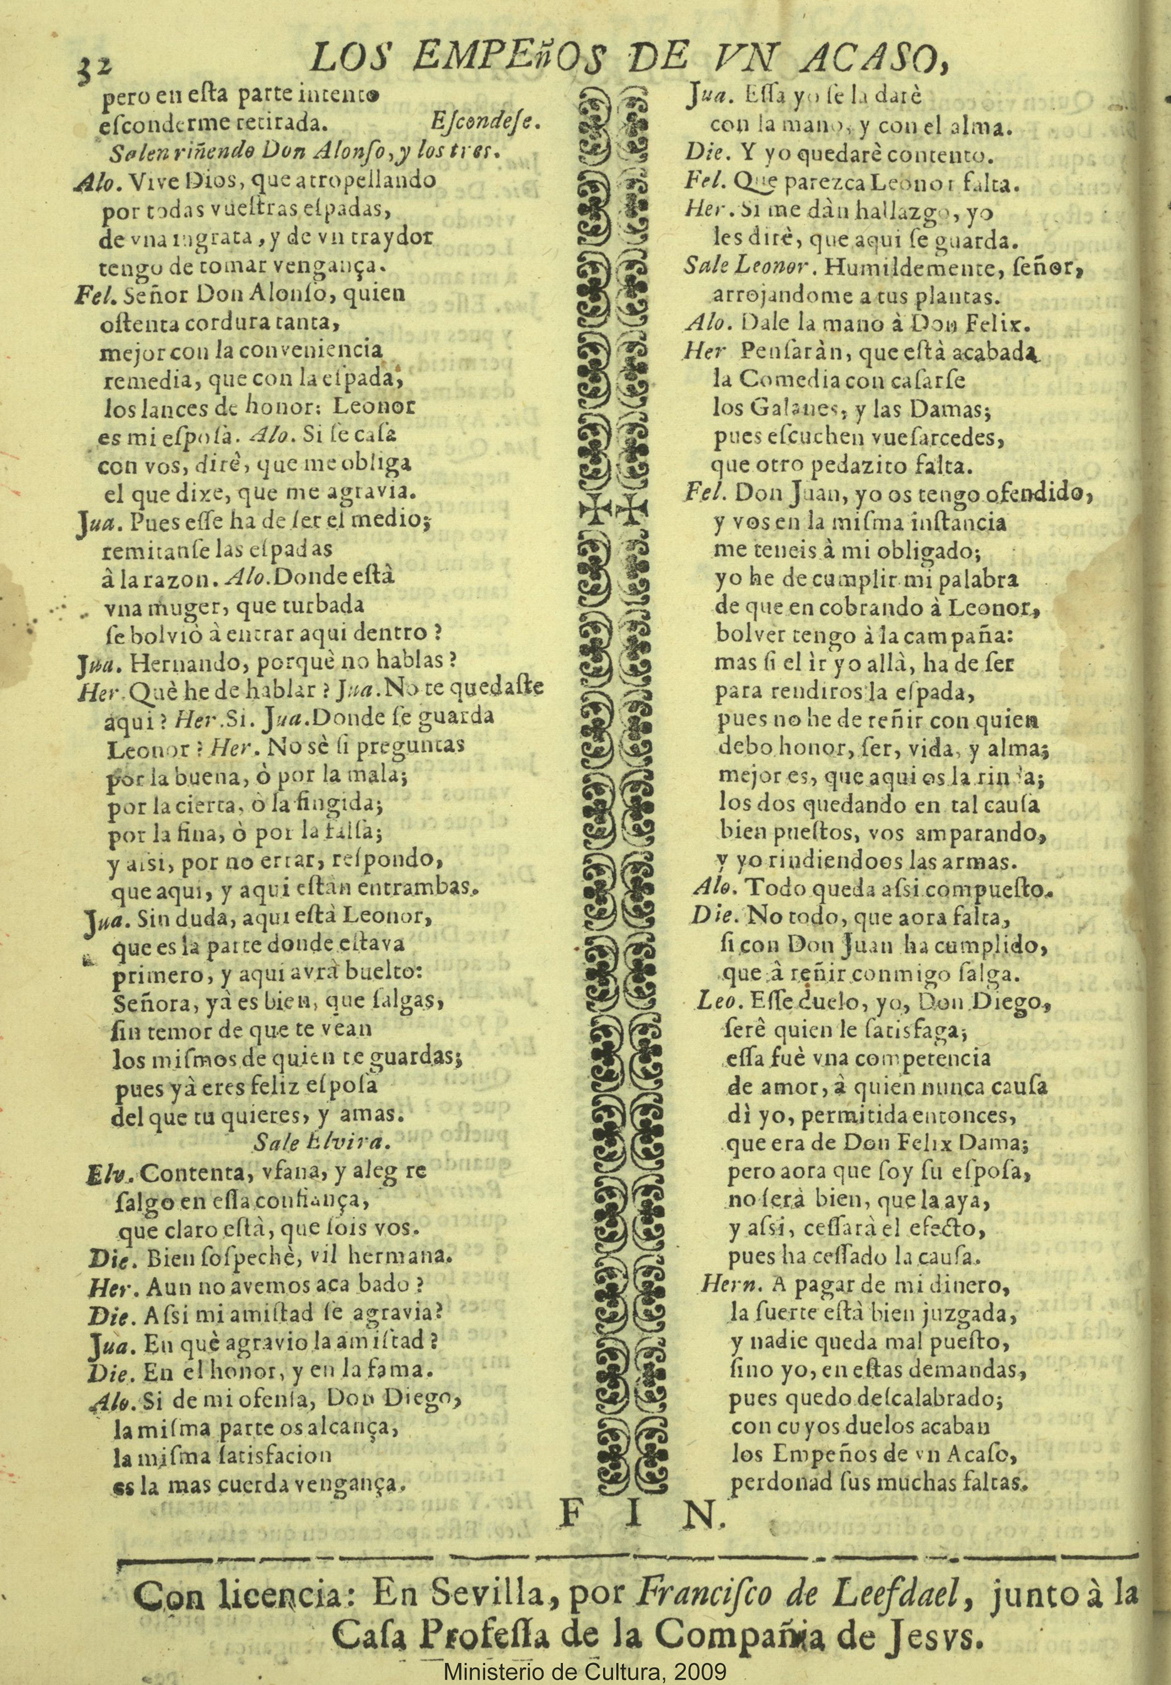 32
LOS EMPEñOS DE VN ACASO,
pero en eſta parte intento
eſconderme retirada. Eſcondeſe.
Salen riñendo Don Alonſo, y los tres.
Alo. Vive Dios, que atropellando
por todas vueſtras eſpadas,
de vna ingrata, y de vn traydor
tengo de tomar vengança.
Fel. Señor Don Alonſo, quien
oſtenta cordura tanta,
mejor con la conveniencia
remedia, que con la eſpada,
los lances de honor: Leonor
es mi eſpoſa. Alo. Si ſe caſa
con vos, dirè, que me obliga
el que dixe, que me agravia.
Jua. Pues eſſe ha de ſer el medio;
remitanſe las eſpadas
à la razon. Alo. Donde eſtà
vna muger, que turbada
ſe bolviò à entrar aqui dentro?
Jua. Hernando, porquè no hablas?
Her. Què he de hablar? Jua. No te quedaſte
aqui? Her. Si. Jua. Donde ſe guarda
Leonor? Her. No sè ſi preguntas
por la buena, ò por la mala;
por la cierta, ò la fingida;
por la fina, ò por la falſa;
y aſsi, por no errar, reſpondo,
que aqui, y aqui eſtàn entrambas.
Jua. Sin duda, aqui eſtà Leonor,
que es la parte donde eſtava
primero, y aqui avrà buelto:
Señora, yà es bien, que ſalgas,
ſin temor de que te vean
los miſmos de quien te guardas;
pues yà eres feliz eſpoſa
del que tu quieres, y amas.
Sale Elvira.
Elv. Contenta, vfana, y alegre
ſalgo en eſſa confiança,
que claro eſtà, que ſois vos.
Die. Bien ſoſpechè, vil hermana.
Her. Aun no avemos acabado?
Die. Aſsi mi amiſtad ſe agravia?
Jua. En què agravio la amiſtad?
Die. En el honor, y en la fama.
Alo. Si de mi ofenſa, Don Diego,
la miſma parte os alcança,
la miſma ſatisfacion
es la mas cuerda vengança.
Jua. Eſſa yo ſe la darè
con la mano, y con el alma.
Die. Y yo quedarè contento.
Fel. Que parezca Leonor falta.
Her. Si me dàn hallazgo, yo
les dirè, que aqui ſe guarda.
Sale Leonor. Humildemente, ſeñor,
arrojandome a tus plantas.
Alo. Dale la mano à Don Felix.
Her Penſaràn, que eſtà acabada
la Comedia con caſarſe
los Galanes, y las Damas;
pues eſcuchen vueſarcedes,
que otro pedazito falta.
Fel. Don Juan, yo os tengo ofendido,
y vos en la miſma inſtancia
me teneis à mi obligado;
yo he de cumplir mi palabra
de que en cobrando à Leonor,
bolver tengo à la campaña:
mas ſi el ir yo allà, ha de ſer
para rendiros la eſpada,
pues no he de reñir con quien
debo honor, ſer, vida, y alma;
mejor es, que aqui os la rinda;
los dos quedando en tal cauſa
bien pueſtos, vos amparando,
y yo rindiendoos las armas.
Alo. Todo queda aſsi compueſto.
Die. No todo, que aora falta,
ſi con Don Juan ha cumplido,
que à reñir conmigo ſalga.
Leo. Eſſe duelo, yo, Don Diego,
ſerè quien le ſatisfaga;
eſſa fuè vna competencia
de amor, à quien nunca cauſa
dì yo, permitida entonces,
que era de Don Felix Dama;
pero aora que ſoy ſu eſpoſa,
no ſerà bien, que la aya,
y aſsi, ceſſarà el efecto,
pues ha ceſſado la cauſa.
Hern. A pagar de mi dinero,
la ſuerte eſtà bien juzgada,
y nadie queda mal pueſto,
ſino yo, en eſtas demandas,
pues quedo deſcalabrado;
con cuyos duelos acaban
los Empeños de vn Acaſo,
perdonad ſus muchas faltas.
F I N.
Con licencia: En Sevilla, por Franciſco de Leefdael, junto à la
Caſa Profeſſa de la Compañia de Jesvs.
Ministerio de Cultura, 2009